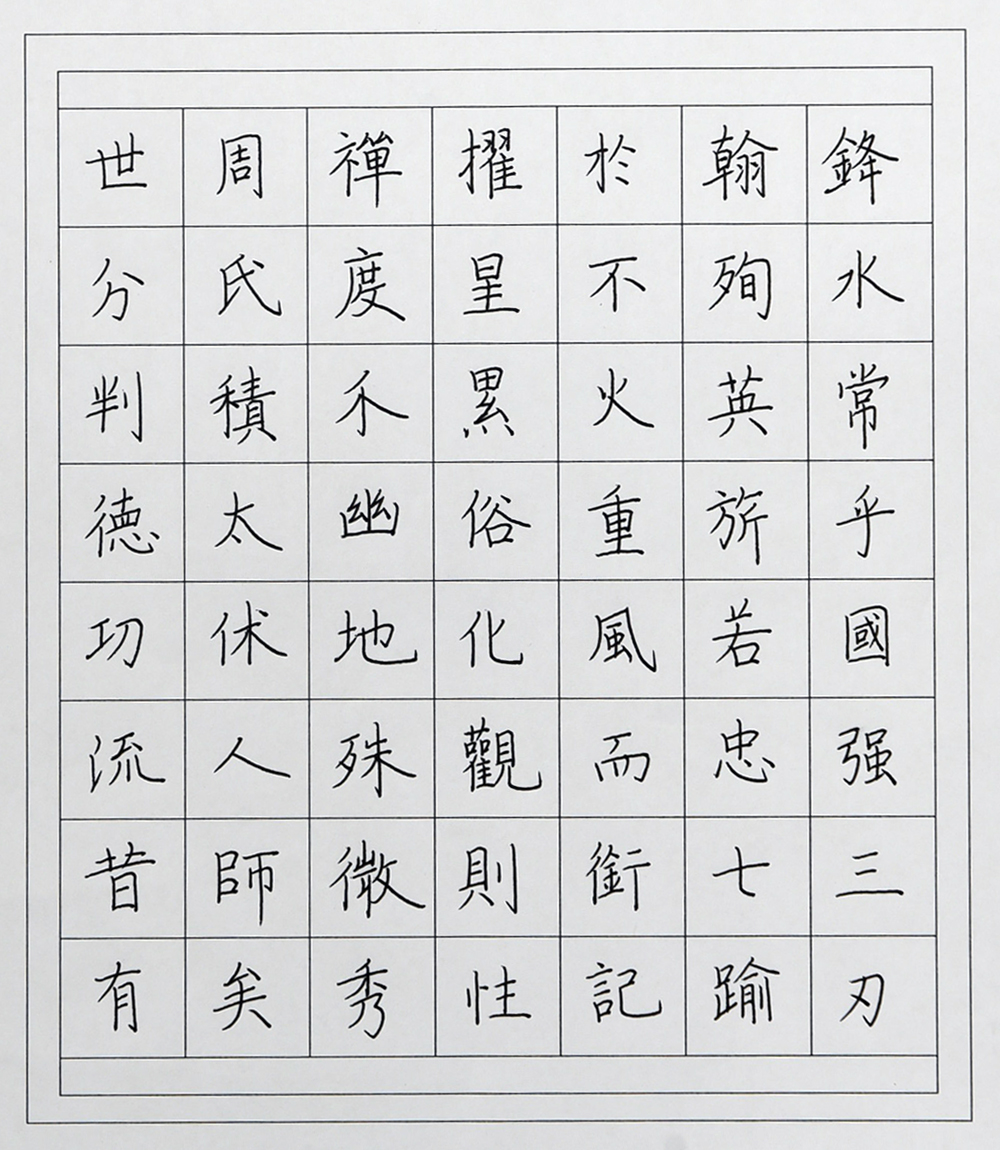 鋒水常乎國强三刃
翰殉英旂若忠七踰
於不火重風而銜記
擢星累俗化觀則性
禪度禾幽地殊微秀
周氏積太休人師矣
世分判德功流昔有